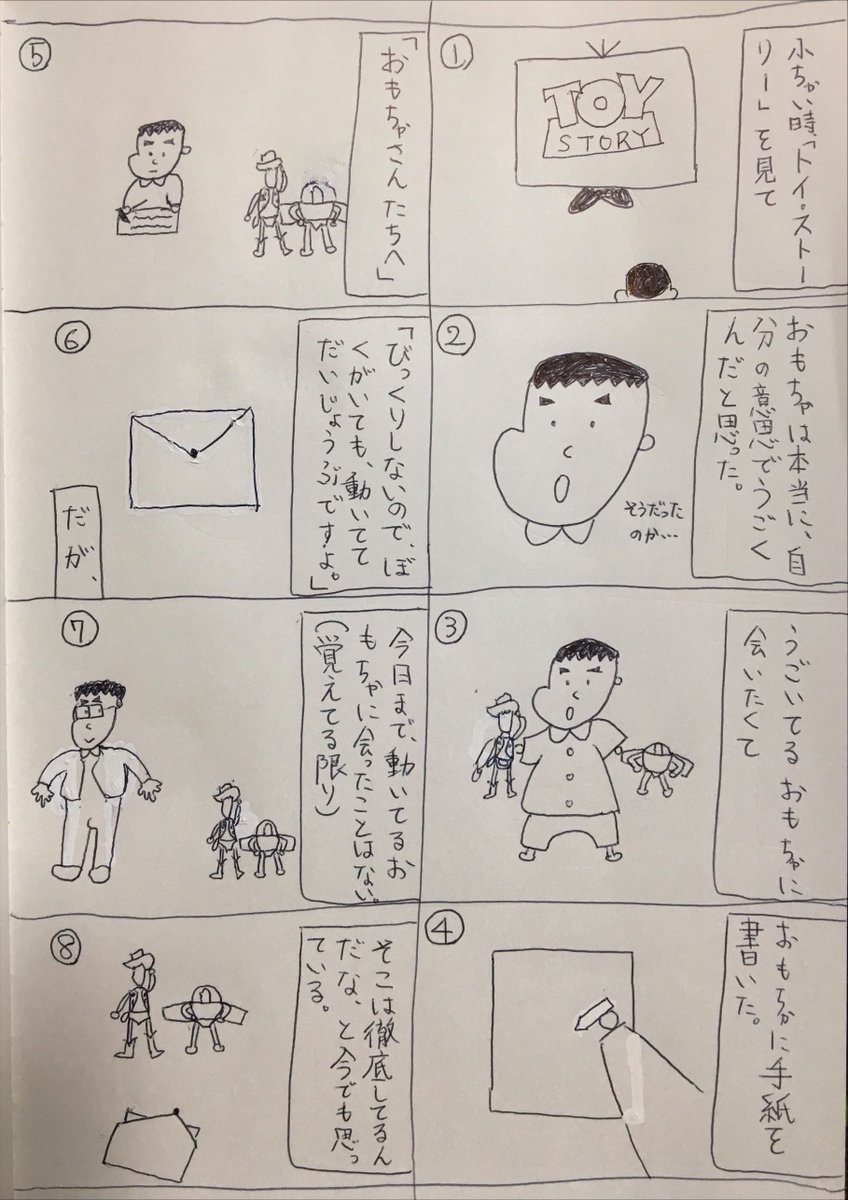 ①
小ちゃい時、「トイ・ストー
リー」を見て
TOY
STORY
②
おもちゃは本当に、自
分の意思でうごく
んだと思った。
そうだった
のか…
③
うごいてる おもちゃに
会いたくて
④
おもちゃに手紙を
書いた。
⑤
「おもちゃさんたちへ」
⑥
「びっくりしないので、ぼ
くがいても、動いてて
だいじょうぶですよ。」
だが、
⑦
今日まで、動いてるお
もちゃに会ったことはない。
（覚えてる限り）
⑧
そこは徹底してるん
だな、と今でも思っ
ている。